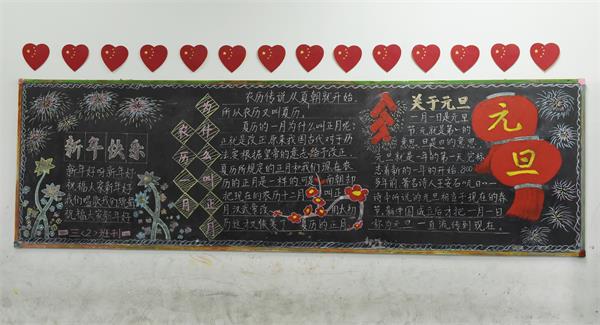 新年快乐
新年好呀新年好
祝福大家新年好
我们唱歌我们跳舞
祝福大家新年好
三(2)班刊
农历一月
为什么叫正月
农历传说从夏朝就开始,
所以农历又叫夏历。
夏历的一月为什么叫正月呢?
正就是改正 原来我国古代对于历
法定根据皇帝的意志给予改正
夏历所规定的正月和我们现在农
历的正月是一样的可
关于元旦
一月一日是元旦
节,元就是第一的
意思,旦是日的意思,
元旦就是一年的第一天,它标
志着新的一年的开始,800
多年前,著名诗人王安石《元日》一
诗中所说的元旦相当于现在的春
节,新中国成立后才把一月一日
称为元旦,一直流传到现在。
元旦